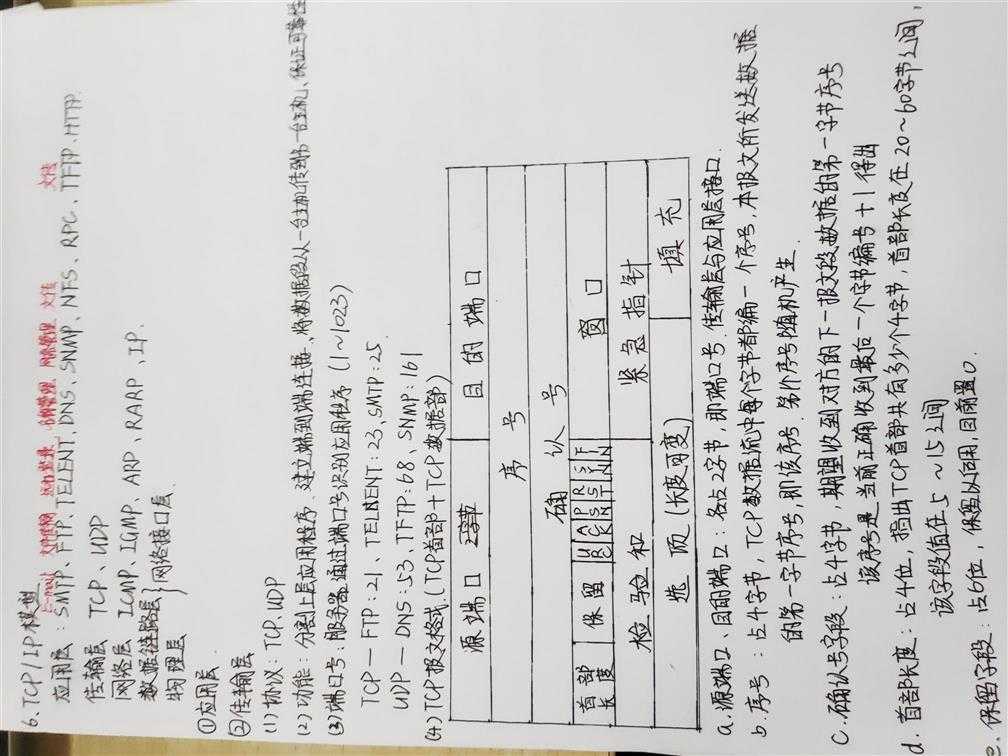 6.TCP/IP模型
E-mail 文件传输 远程登录 名称管理 网络管理 文传 文传
应用层 SMTP、FTP、TELENT、DNS、SNMP、NFS、RPC、TFTP、HTTP.
传输层 TCP、UDP
网络层 ICMP、IGMP、ARP、RARP、IP.
数据链路层
物理层 }网络接口层.
①应用层
②传输层
(1)协议:TCP、UDP
(2)功能:分割上层应用程序、建立端到端连接、将数据段从一台主机传到另一台主机、保证可靠性
(3)端口号:服务器通过端口号识别应用程序(1~1023)
TCP—FTP:21、TELENENT:23、SMTP:25
UDP—DNS:53、TFTP:68、SNMP:161
(4)TCP报文格式.(TCP首部+TCP数据部)
源端口 2字节 目的端口
序号
确认号
首部长度 保留 UR AC PS RS SY FI 窗口
检验和 紧急指针
选项(长度可变) 填充
a.源端口、目的端口:各占2字节,即端口号,传输层与应用层接口.
b.序号:占4字节,TCP数据流中每个字节都编一个序号,本报文所发送数据
的第一字节序号,即该序号.第1个序号随机产生.
c.确认号字段:占4字节,期望收到对方的下一报文段数据的第一字节序号
该序号是当前正确收到最后一个字节编号+1得出
d.首部长度:占4位,指出TCP首部共有多少个4字节,首部长度在20~60字节之间,
该字段值在5~15之间
e.保留字段:占6位,保留以后用,目前置0.